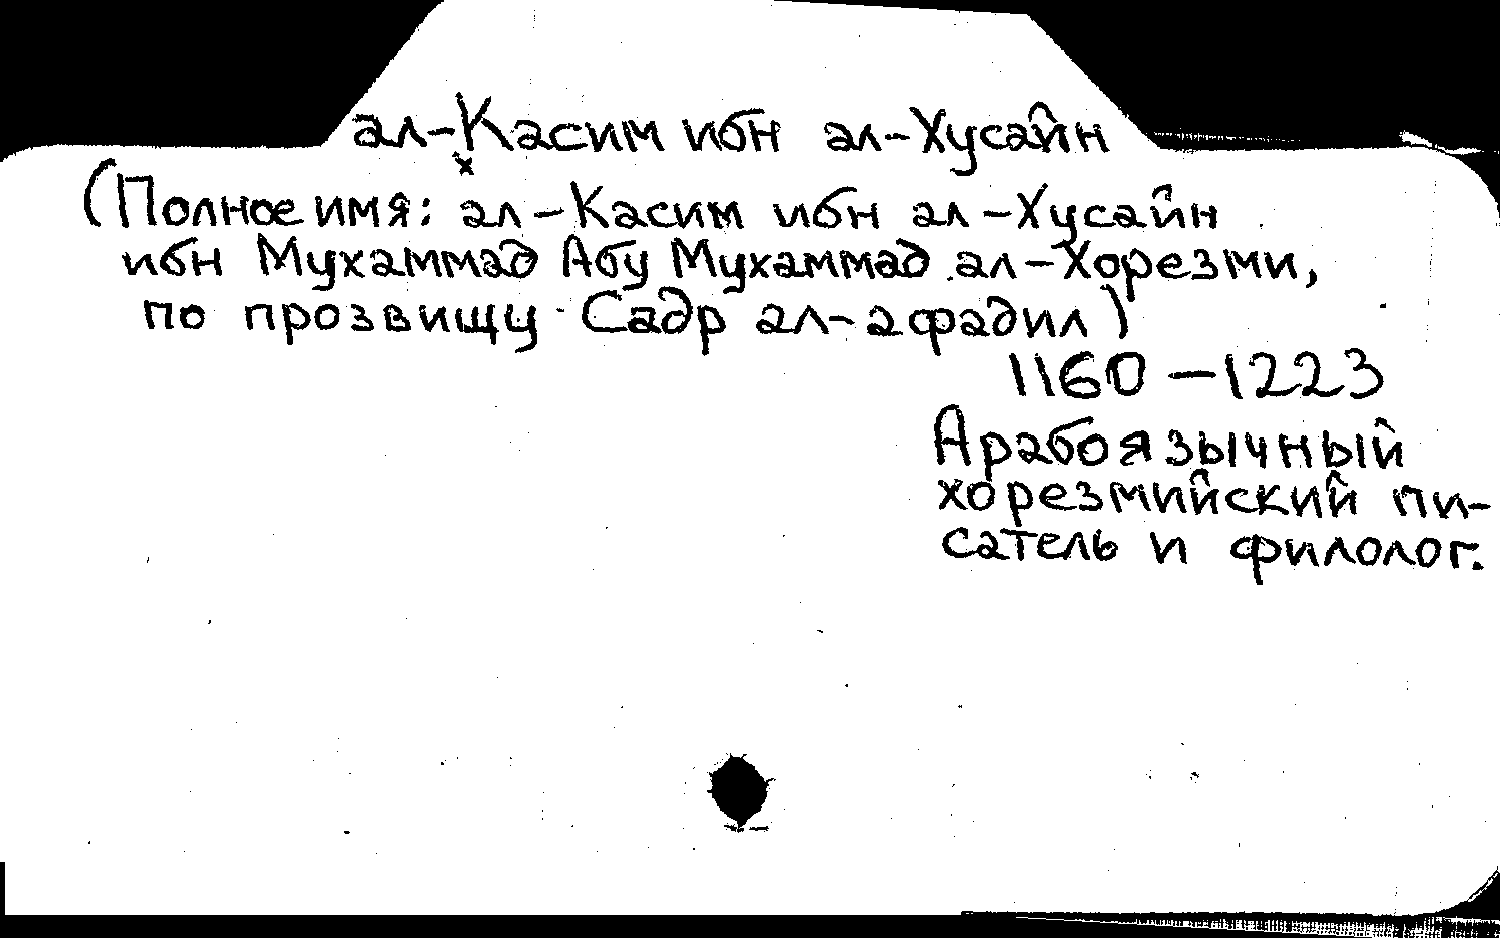 ал-Касим ибн ал-Хусайн
х
(Полное имя: ал-Касим ибн ал-Хусайн
ибн Мухаммад Абу Мухаммад ал-Хорезми,
по прозвищу Садр ал-афадил)
1160-1223
Арабоязычный
хорезмийский пи-
сатель и филолог.